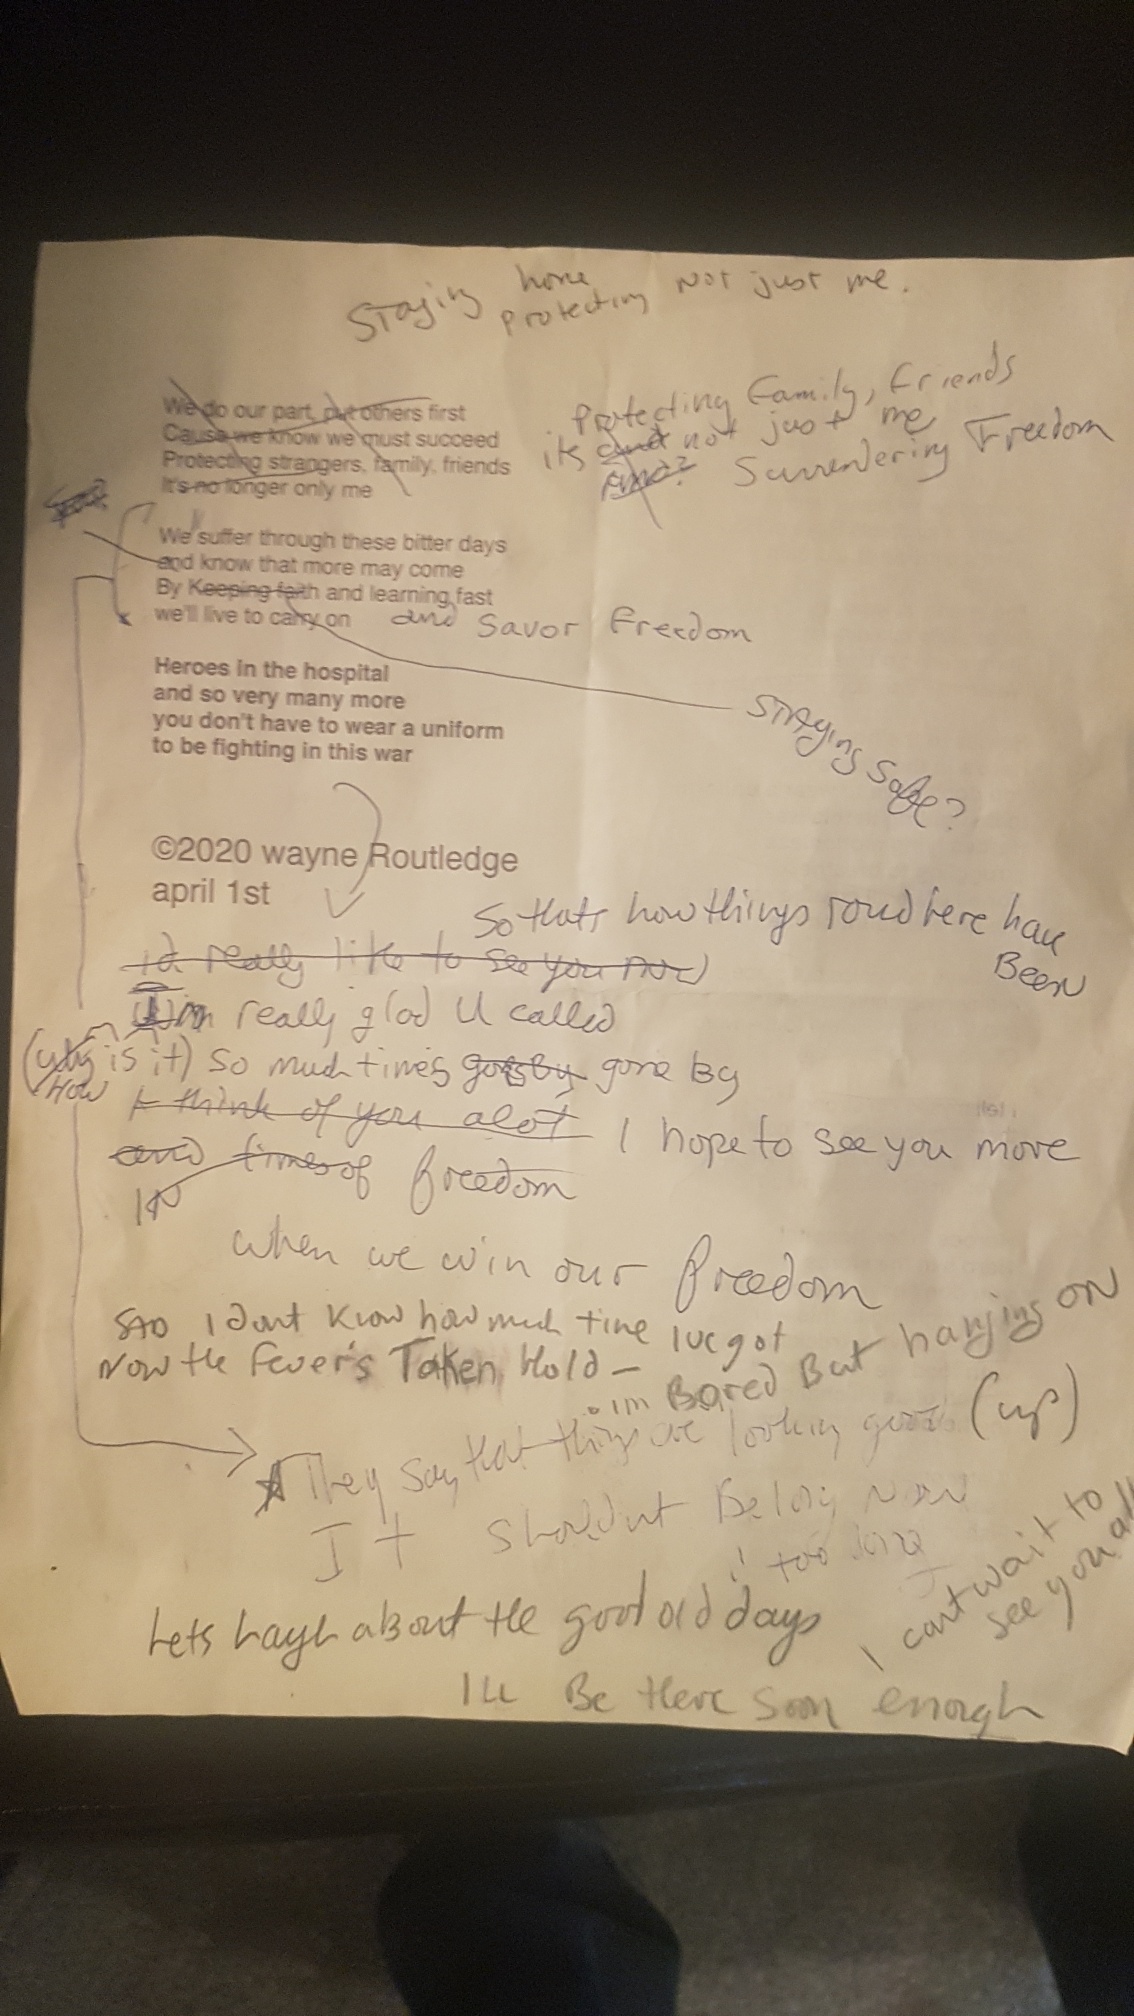 Staying home
protecting Not just me.
Protecting Family, Friends
its and not just me
And? Surrendering Freedom
We do our part, put others first
Cause we know we must succeed
Protecting strangers, family, friends
It's no longer only me
We suffer through these bitter days
and know that more may come
By Keeping faith and learning fast
we'll live to carry on and Savor Freedom
Heroes in the hospital
and so very many more
you don't have to wear a uniform
to be fighting in this war
STAying Safe?
©2020 wayne Routledge
april 1st
So thats how things roud here have
Been
id really like to see you
I'm really glad U called
(why is it) So much time's goes by gone By
How
I think of you alot I hope to see you more
and times of freedom
IN
when we win our freedom
So I dont Know how much time Ive got
Now the Fever's Taken Hold –
im Bored But hanging ON
They say that things are looking good (up)
It shouldnt Be long Now
! too long
I cant wait to
see you all
Lets Laugh aBout the good old days
Ill Be there soon enough